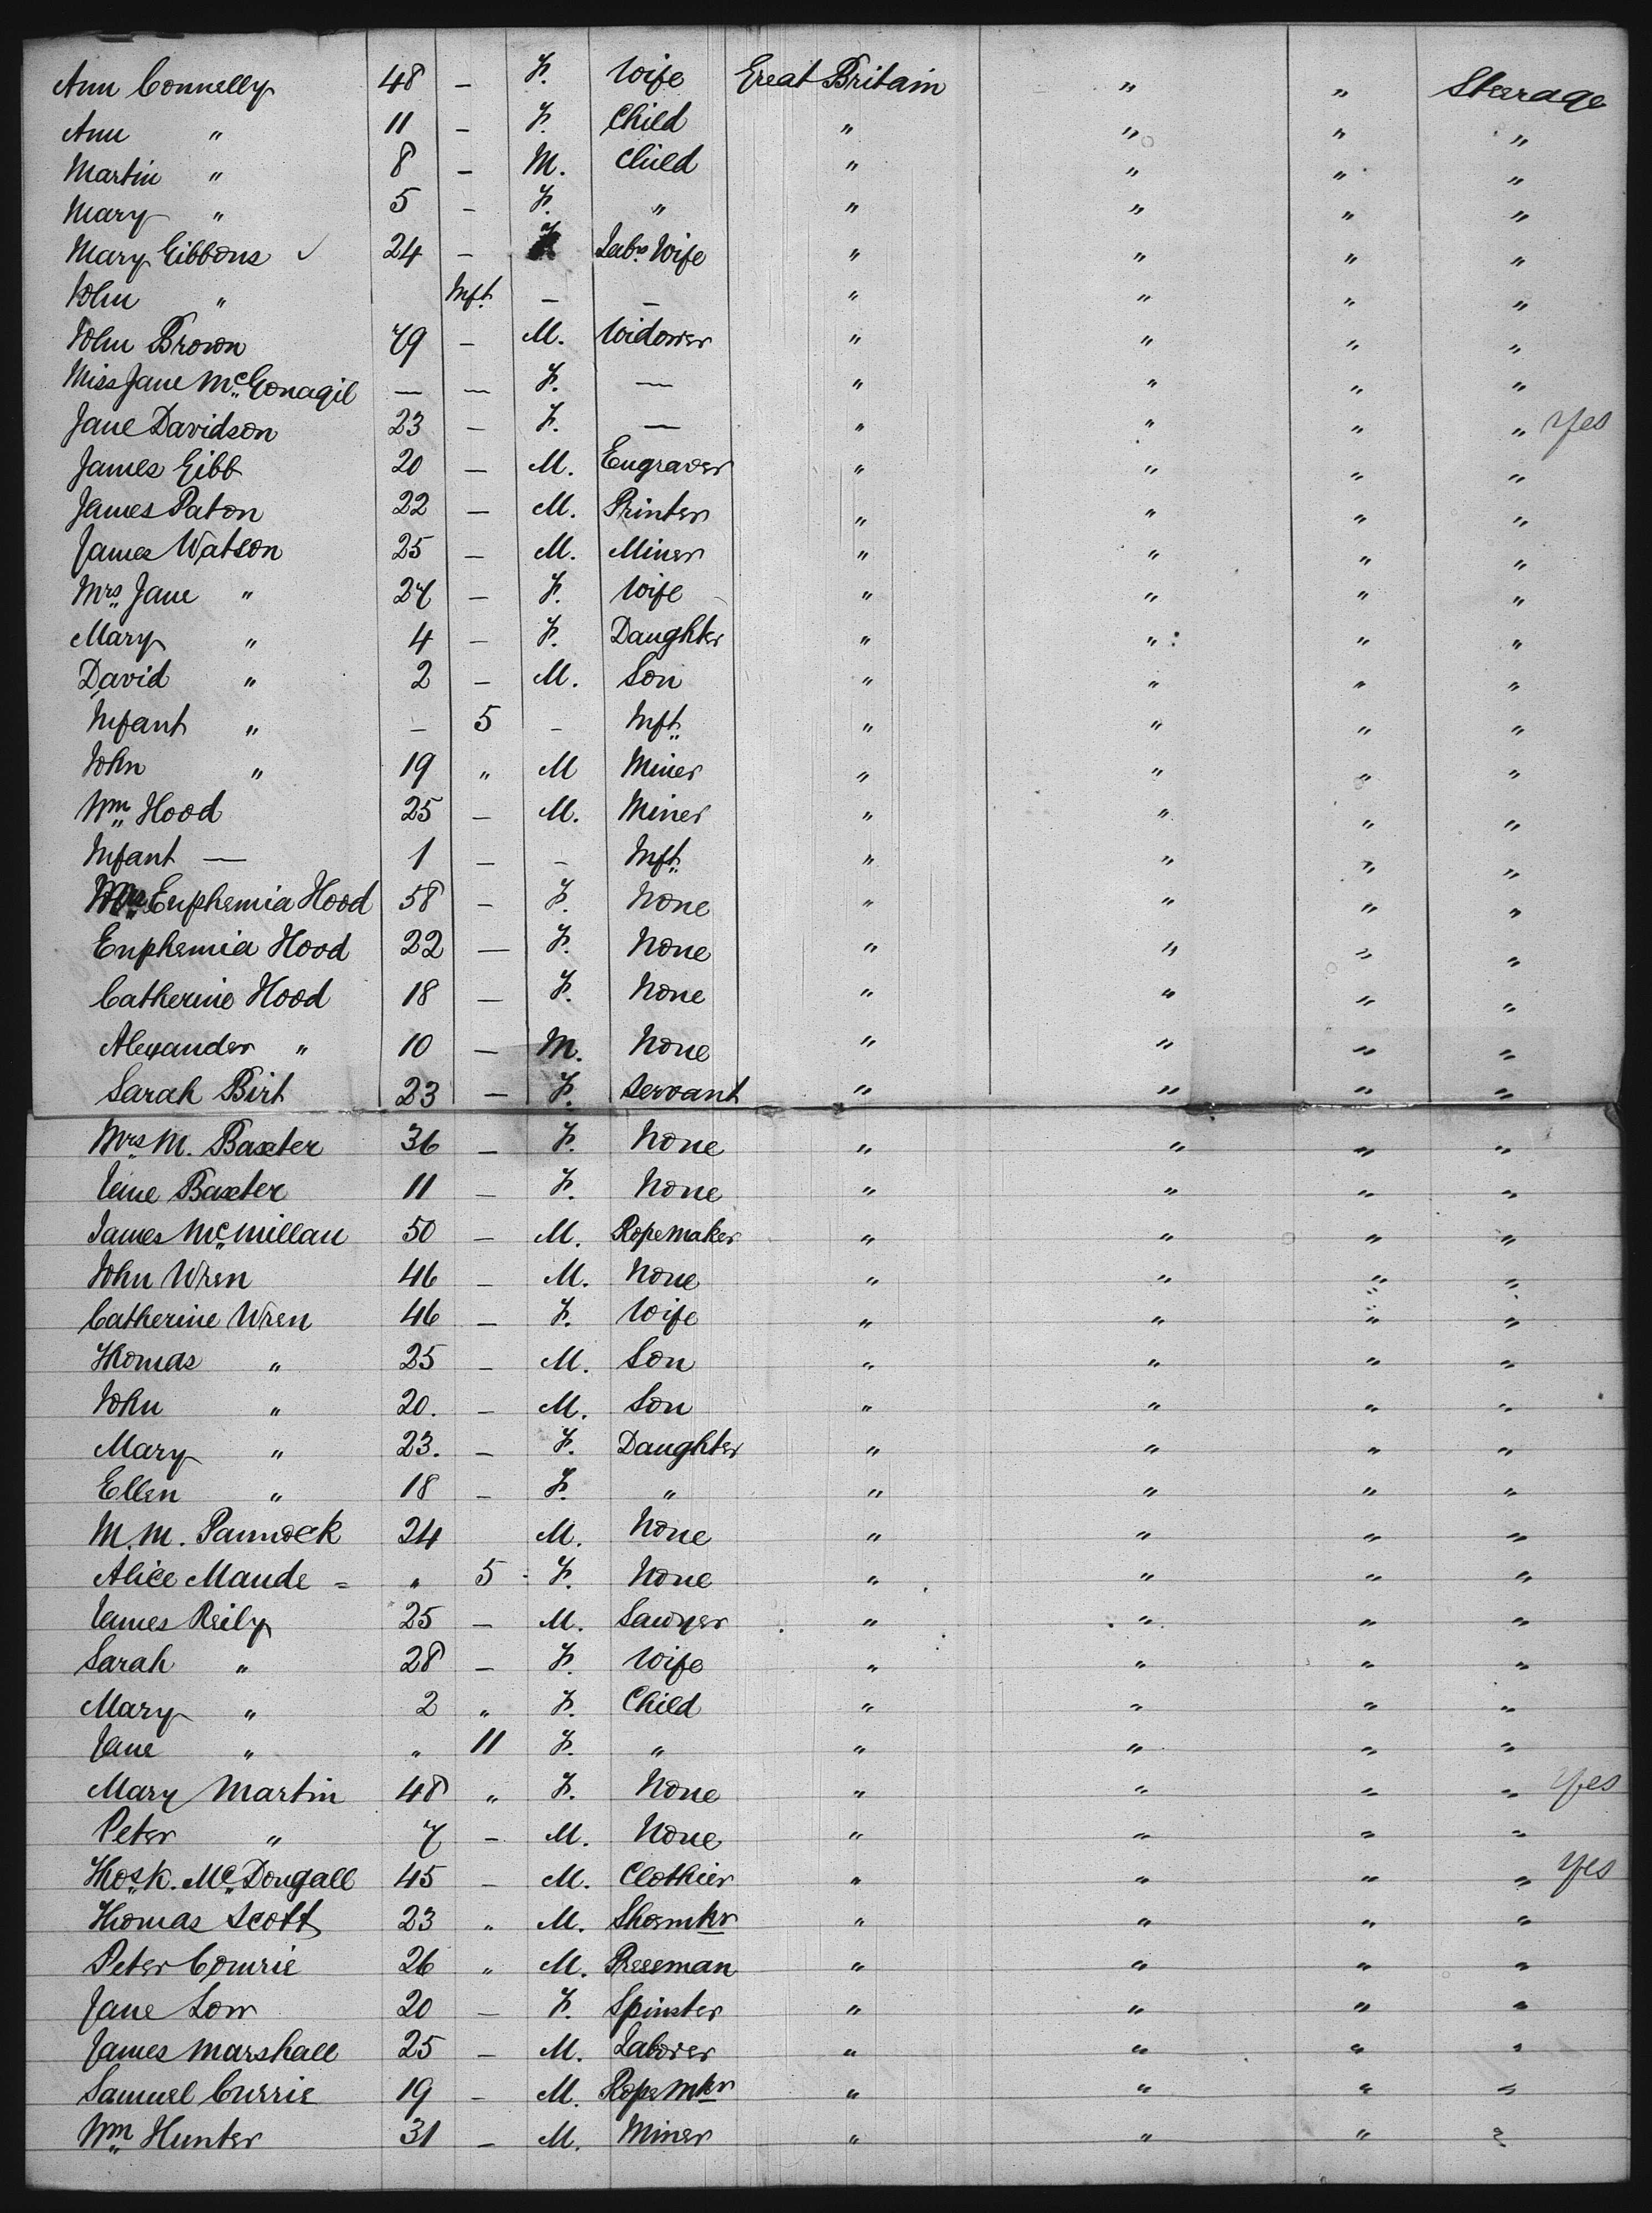 Ann Connelly 48 – F. Wife Great Britain " " Steerage
Ann " 11 – F. Child " " " "
Martin " 8 – M. Child " " " "
Mary " 5 – F. " " " " "
Mary Gibbons ✓ 24 – F Labs Wife " " " "
John " Inft. – – " " " "
John Brown 79 – M. Widower " " " "
Miss Jane McGonagil — — F. — " " " "
Jane Davidson 23 – F. — " " " " Yes
James Gibb 20 – M. Engraver " " " "
James Paton 22 – M. Printer " " " "
James Watson 25 – M. Miner " " " "
Mrs Jane " 27 – F. Wife " " " "
Mary " 4 – F. Daughter " " " "
David " 2 – M. Son " " " "
Infant " – 5 – Inft. " " " "
John " 19 " M Miner " " " "
Wm Hood 25 – M. Miner " " " "
Infant — 1 – – Inft. " " " "
Mrs Euphemia Hood 58 – F. None " " " "
Euphemia Hood 22 — F. None " " " "
Catherine Hood 18 – F. None " " " "
Alexander " 10 – M. None " " " "
Sarah Birt 23 – F. Servant " " " "
Mrs M. Baxter 36 – F. None " " " "
Jane Baxter 11 – F. None " " " "
James McMillan 50 – M. Ropemaker " " " "
John Wren 46 – M. None " " " "
Catherine Wren 46 – F. Wife " " " "
Thomas " 25 – M. Son " " " "
John " 20. – M. Son " " " "
Mary " 23. – F. Daughter " " " "
Ellen " 18 – F. " " " " "
M. M. 24 M. None " " " "
Alice Maude = " 5 - F. None " " " "
James Reily 25 – M. Sawyer " " " "
Sarah " 28 – F. Wife " " " "
Mary " 2 " F. Child " " " "
Jane " " 11 F. " " " " "
Mary Martin 48 " F. None " " " " Yes
Peter " 7 – M. None " " " "
Thos. K. McDougall 45 – M. Clothier " " " " Yes
Thomas Scott 23 " M. Shoemkr " " " "
Peter Comrie 26 " M. Pressman " " " "
Jane Low 20 – F. Spinster " " " "
James Marshall 25 – M. Laborer " " " "
Samuel Currie 19 – M. Ropemkr " " " "
Wm Hunter 31 – M. Miner " " " "